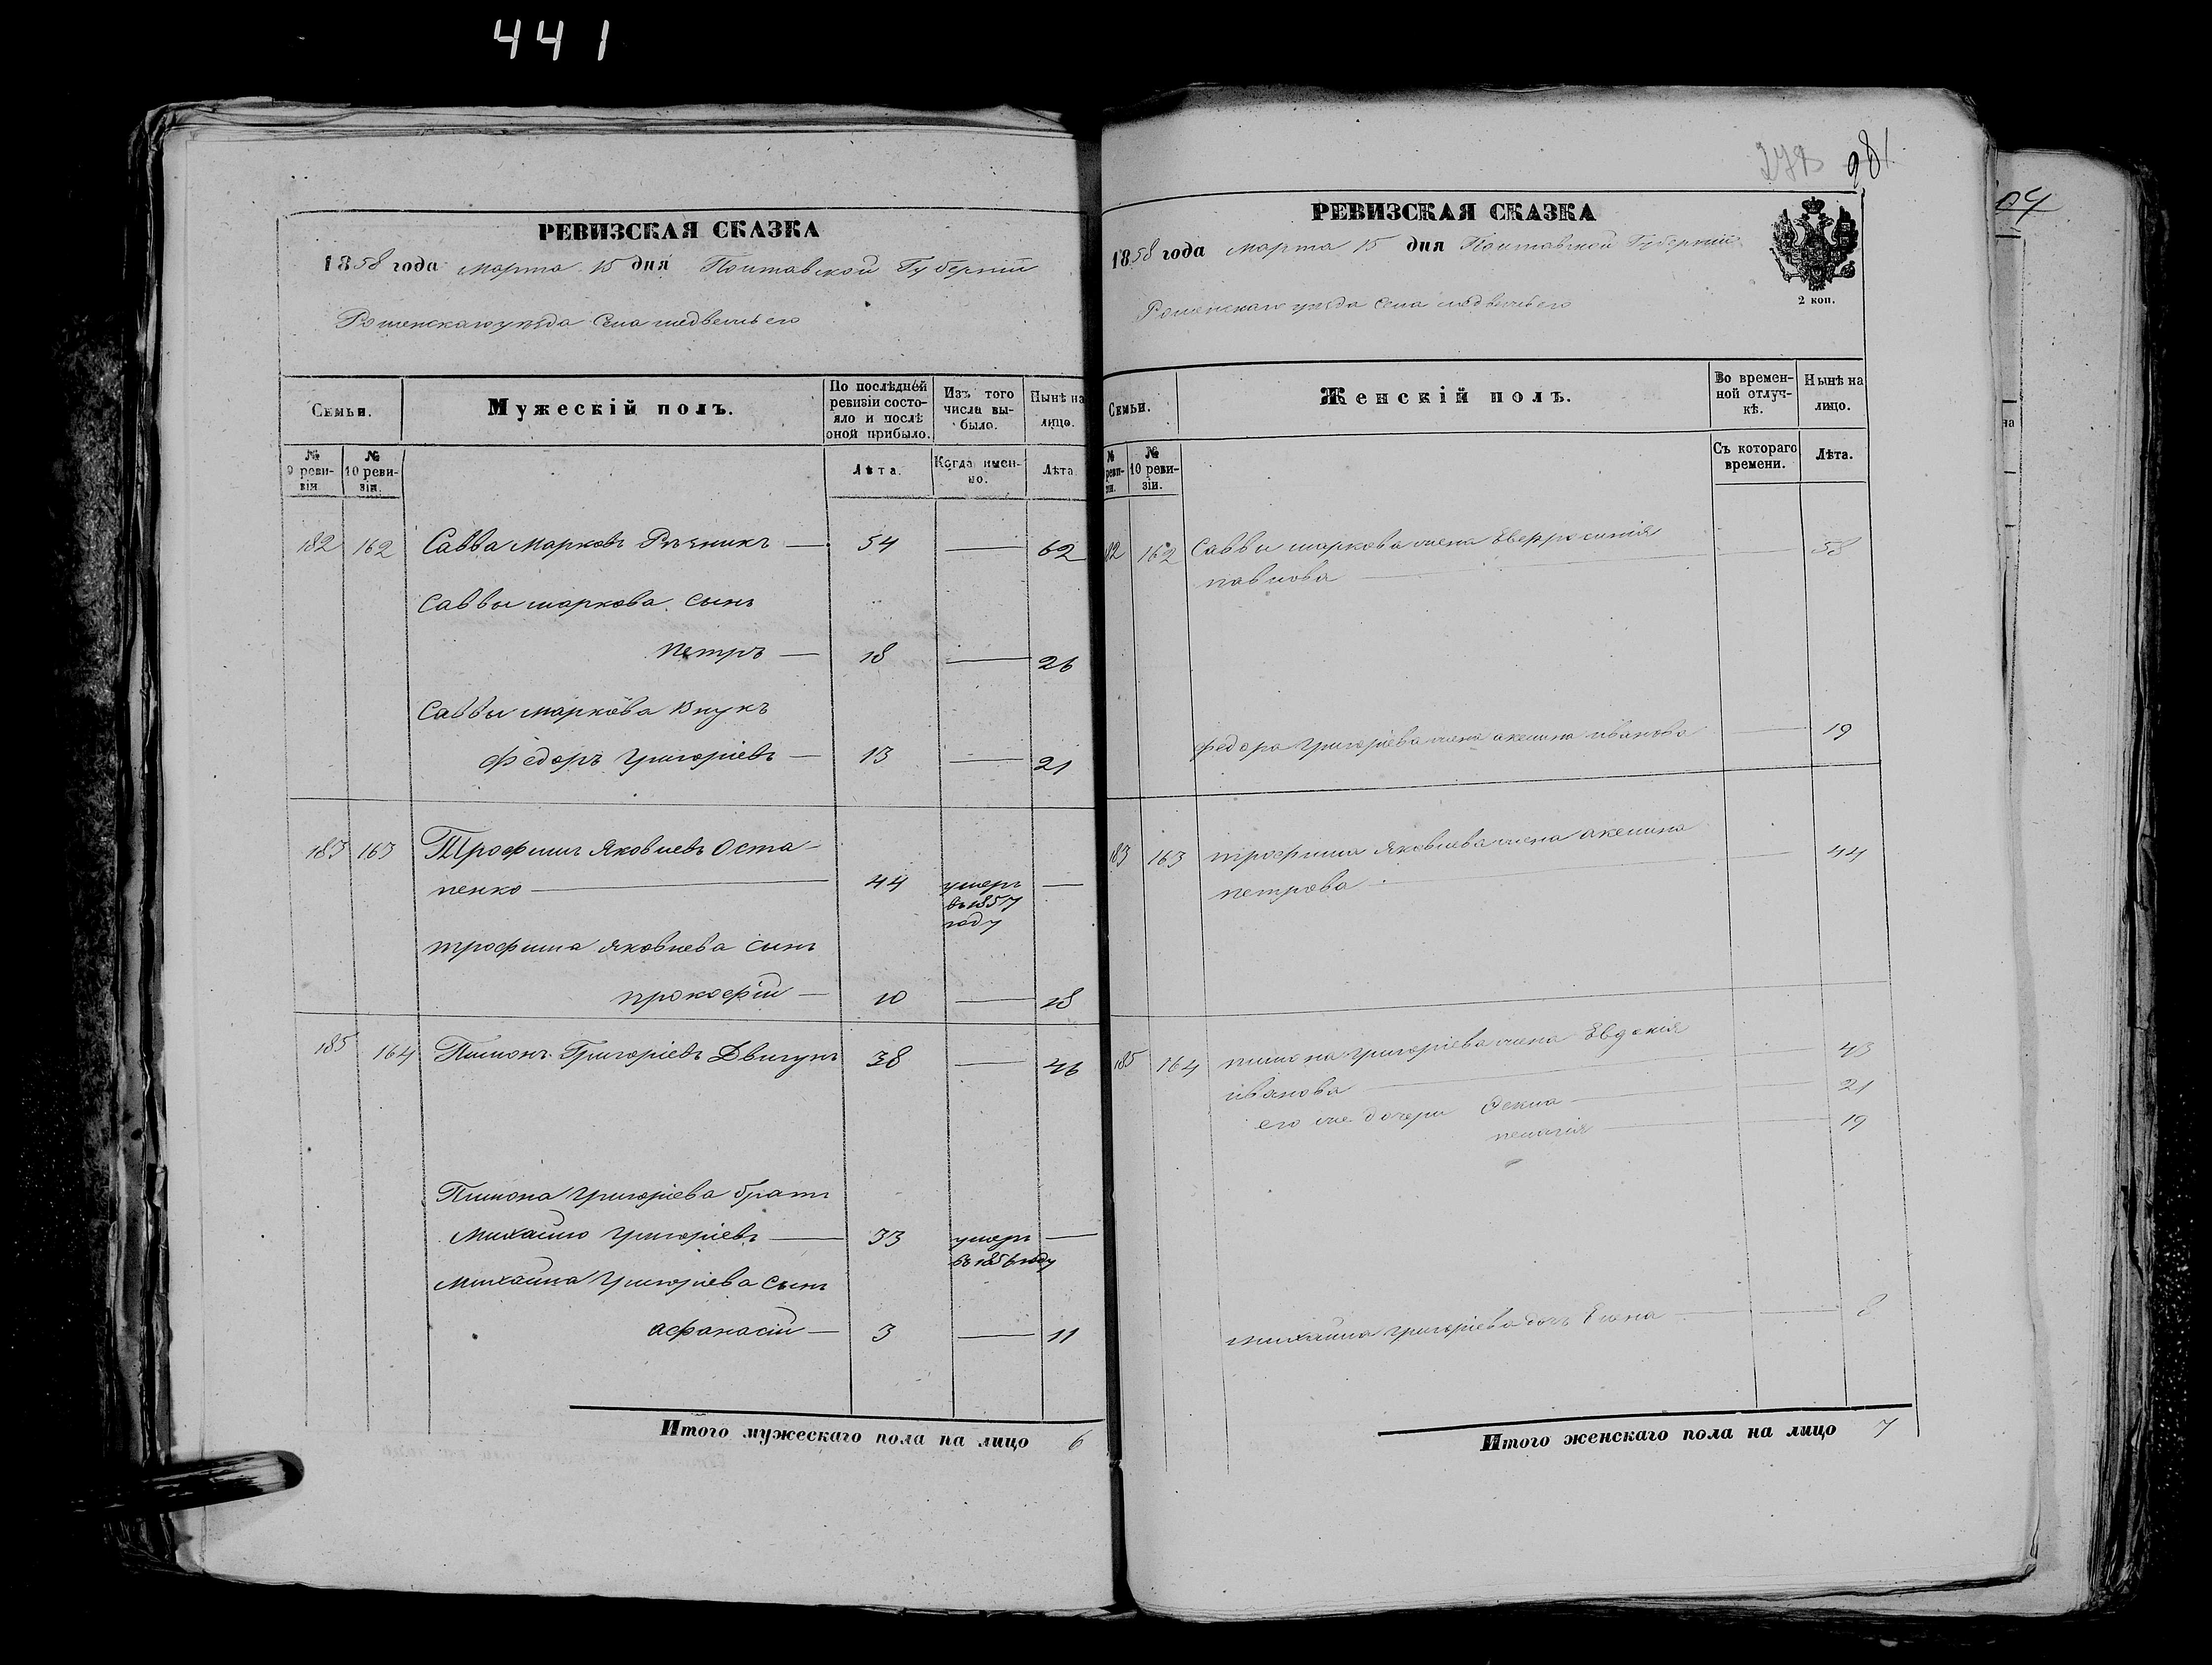 441
РЕВИЗСКАЯ СКАЗКА
1858 года марта 15 дня Полтавской Губерніи
Роменскаго уѣзда Села медвежьего
Семьи.
Мужескій полъ.
По послѣдней ревизіи состояло и послѣ оной прибыло.
Изъ того числа выбыло.
Нынѣ на лицо.
№ 9 ревизіи.
№ 10 ревизіи.
Лѣта.
Когда именно.
Лѣта.
182 162 Савва Марковъ Рѣзникъ — 54 — 62
Саввы маркова сынъ
петръ — 18 — 26
Саввы маркова Внукъ
федоръ григоріевъ — 13 — 21
183 163 Трофимъ Яковлевъ Оста-
пенко — 44 умеръ —
въ 1857
году
трофима яковлева сынъ
прокофій — 10 — 18
185 164 Пимонъ Григоріевъ Двигунъ 38 — 46
Пимона григоріева братъ
Михайло григоріевъ — 33 умеръ —
въ 1856 году
михайла григоріева сынъ
афанасій — 3 — 11
Итого мужескаго пола на лицо 6
281
РЕВИЗСКАЯ СКАЗКА
1858 года марта 15 дня Полтавской Губерніи
2 коп.
Роменскаго уѣзда Села медвежьего
Семьи.
Женскій полъ.
Во временной отлучкѣ.
Нынѣ на лицо.
№ ревизіи.
№ 10 ревизіи.
Съ котораго времени.
Лѣта.
82 162 Саввы маркова жена Евфросинія — 58
павлова —
федора григоріева жена акелина иванова — 19
183 163 трофима яковлева жена акелина — 44
петрова —
185 164 пимона григоріева жена Евдокія
иванова — 43
его же дочери Фекла — 21
пелагія — 19
михайла григоріева дочь Елена —
Итого женскаго пола на лицо 7
04
на